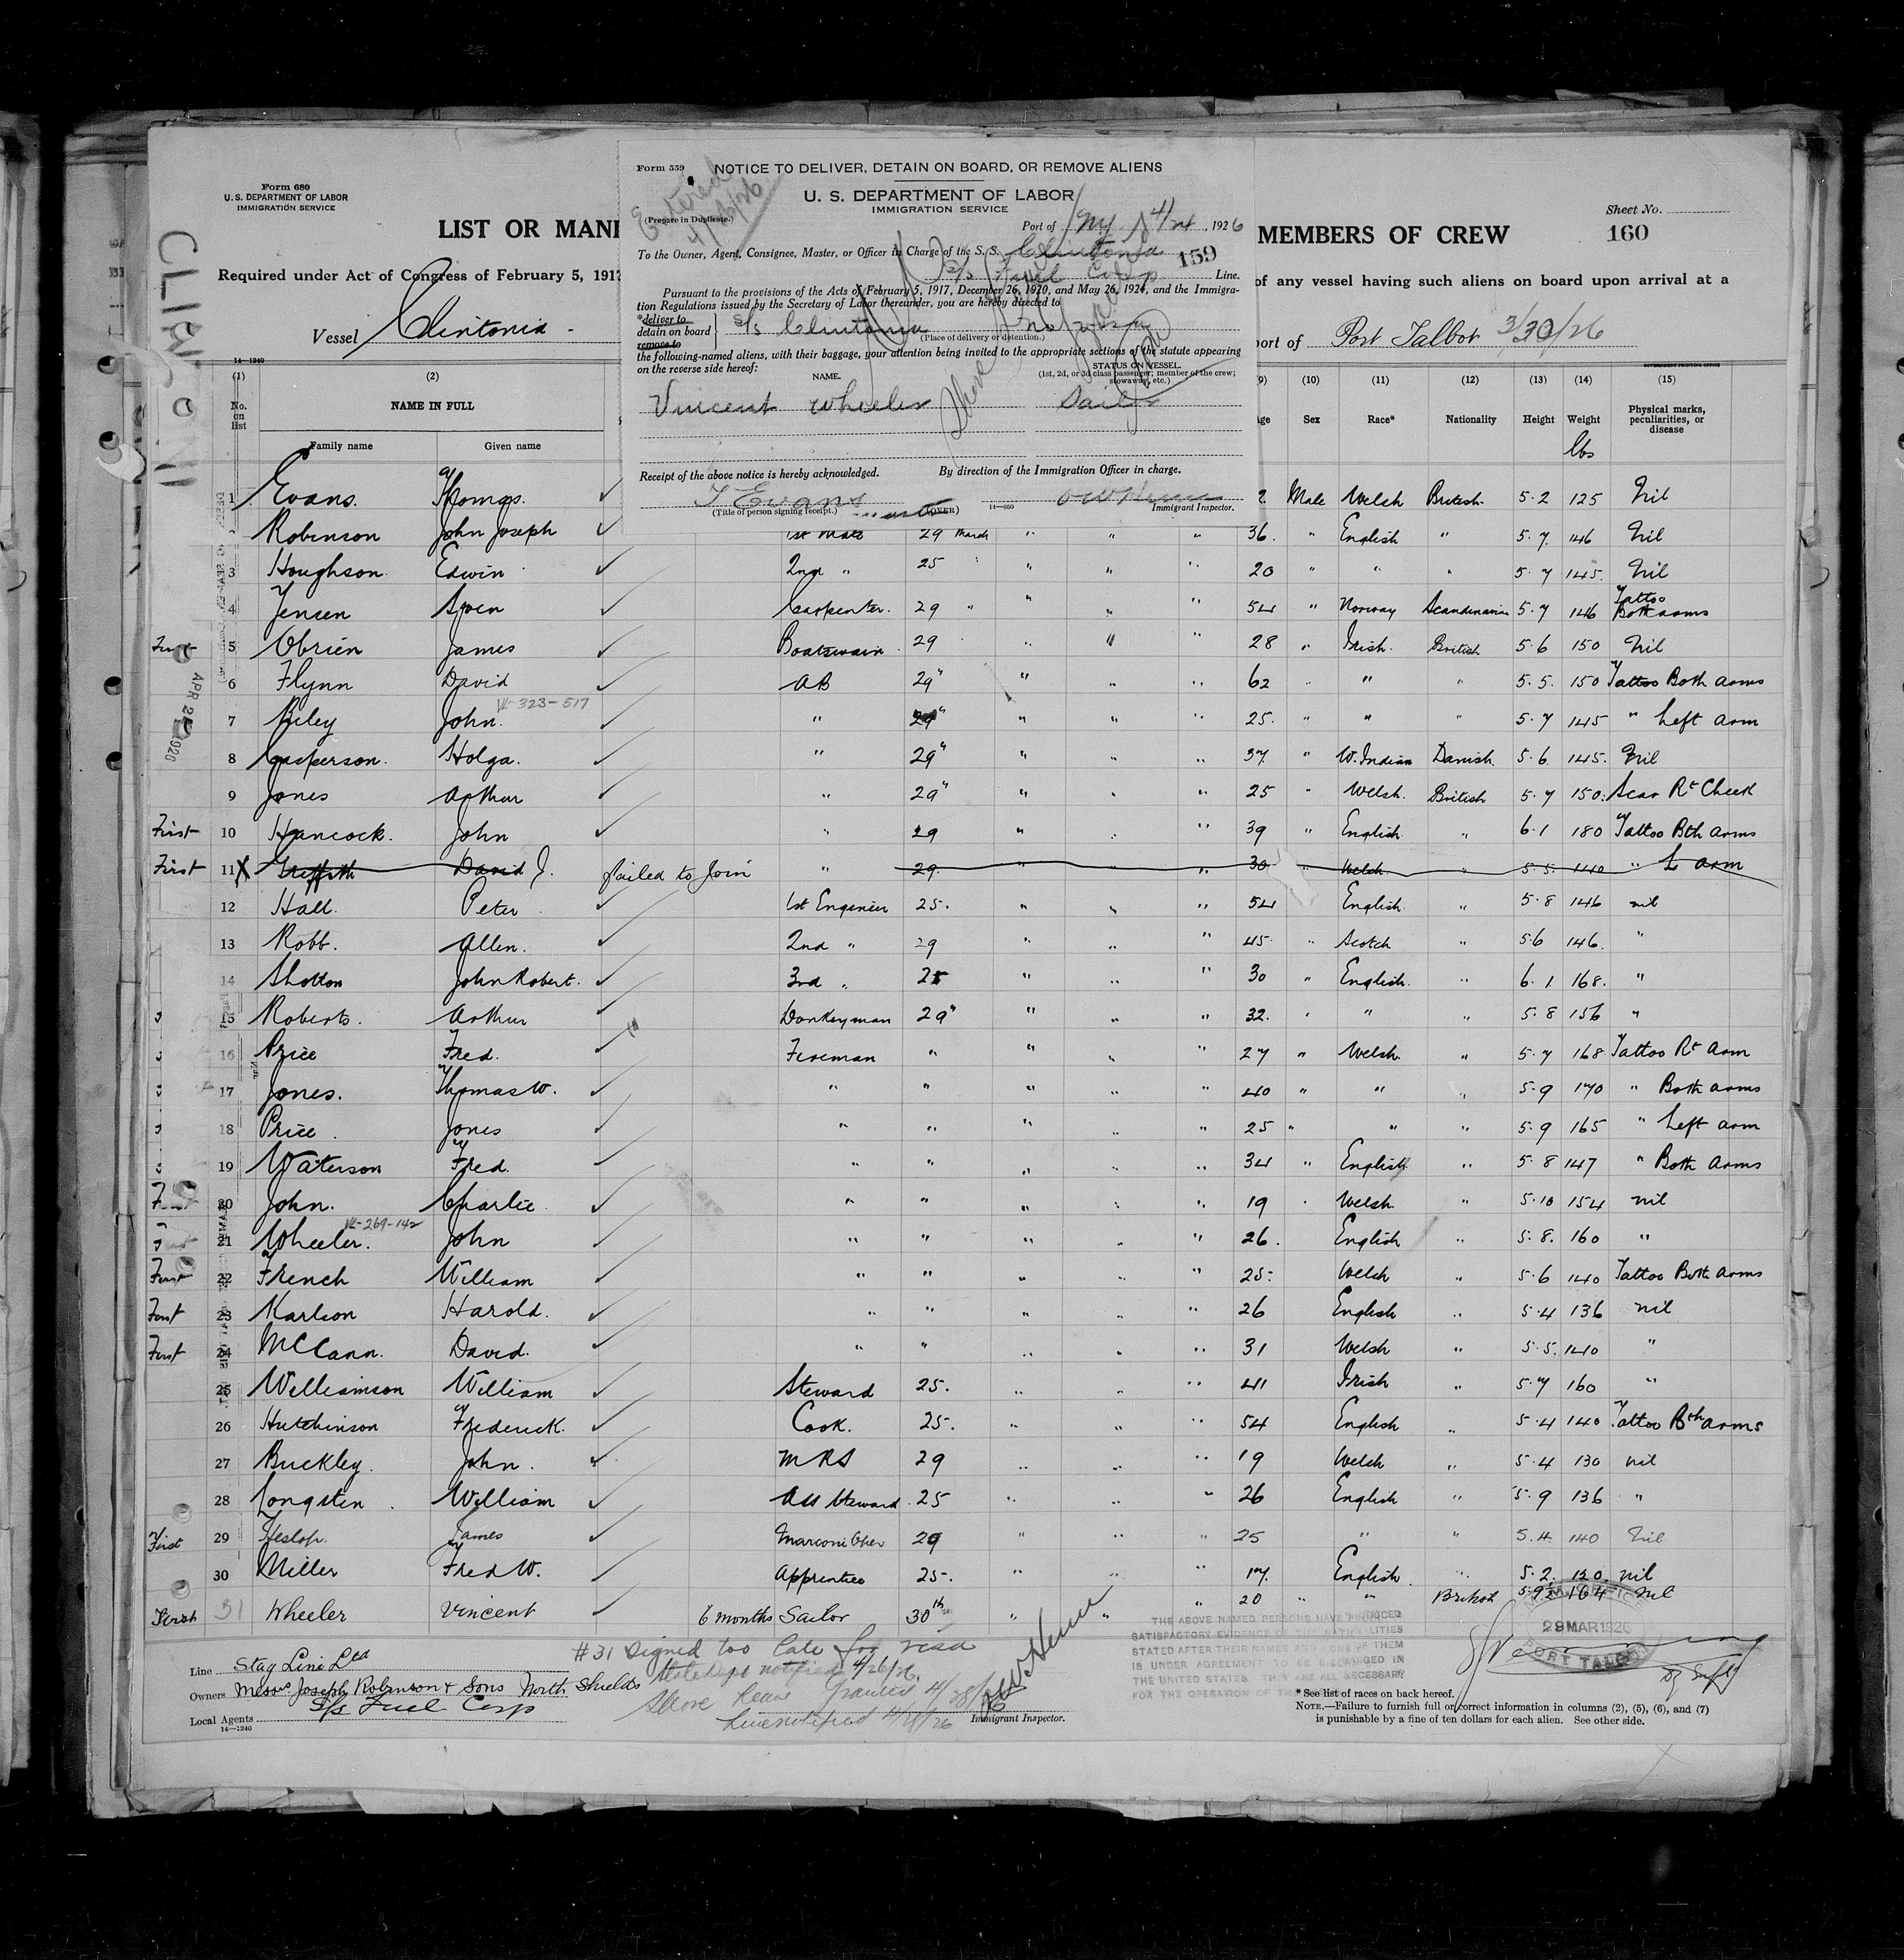 Form 680
U. S. DEPARTMENT OF LABOR
IMMIGRATION SERVICE
LIST OR MANI
Required under Act of Congress of February 5, 1917
Vessel Clintonia
14—1240
CLINTONI
APR 2 1926
Form 559
NOTICE TO DELIVER, DETAIN ON BOARD, OR REMOVE ALIENS
U. S. DEPARTMENT OF LABOR
IMMIGRATION SERVICE
(Prepare in Duplicate.)
Entered
Port of NY 4/24, 1926
To the Owner, Agent, Consignee, Master, or Officer in Charge of the S. S. Clintonia
159
S/s Fuel Corp Line.
Pursuant to the provisions of the Acts of February 5, 1917, December 26, 1920, and May 26, 1924, and the Immigra-
tion Regulations issued by the Secretary of Labor thereunder, you are hereby directed to
*deliver to
detain on board
remove to
S/s Clintonia
(Place of delivery or detention.)
the following-named aliens, with their baggage, your attention being invited to the appropriate sections of the statute appearing
on the reverse side hereof:
NAME.
STATUS ON VESSEL.
(1st, 2d, or 3d class passenger; member of the crew;
stowaway, etc.)
Vincent Wheeler Sailor
Receipt of the above notice is hereby acknowledged.
By direction of the Immigration Officer in charge.
T Evans
(Title of person signing receipt.)
(OVER)
14—660
Immigrant Inspector.
Sheet No.
160
MEMBERS OF CREW
of any vessel having such aliens on board upon arrival at a
port of Port Talbot 3/30/26
GOVERNMENT PRINTING OFFICE
(1) (2) (9) (10) (11) (12) (13) (14) (15)
No. on list NAME IN FULL Age Sex Race* Nationality Height Weight Physical marks, peculiarities, or disease
Family name Given name lbs
1 Evans. Thomas. 2 Male Welsh British 5.2 125 Nil
Robinson John Joseph 1st Mate 29 March " " " 36. " English " 5.7. 146 Nil
3 Houghson Edwin 2nd " 25 " " " " 20 " " " 5 7 145. Nil
4 Jensen Sven Carpenter. 29 " " " " 54 " Norway Scandinavian 5.7 146 Tattoo Both arms
First 5 Obrien James Boatswain 29 " " " 28 " Irish. British 5.6 150 Nil
6 Flynn David AB 29 " " " " 62 " " " 5.5. 150 Tattoo Both arms
VL-323-517
7 Riley John. " 29 " " " " 25. " " " 5.7 145 " Left arm
8 Casperson. Holga. " 29 " " " " 37 " W. Indian Danish. 5.6. 145. Nil
9 Jones Arthur " 29 " " " " 25 " Welsh. British 5.7 150. Scar Rt Cheek
First 10 Hancock. John " 29 " " " 39 " English. " 6.1 180 Tattoo Bth arms
First 11 X Griffith David J. failed to join " 29. " " " 30 " Welsh. " 5.5. 140 " L arm
12 Hall. Peter 1st Engineer 25. " " " 54 " English. " 5.8 146 nil
13 Robb. Allen. 2nd " 29 " " " 45. " Scotch " 5.6 146. "
14 Shotton John Robert. 3rd " 25 " " " 30 " English. " 6.1. 168. "
15 Roberts. Arthur Donkeyman 29 " " " " 32. " " " 5.8 156 "
16 Price Fred. Fireman " " " " 27 " Welsh. " 5.7 168 Tattoo Rt Arm
17 Jones. Thomas W. " " " " " 40 " " " 5.9 170 " Both arms
18 Price. Jones " " " " " 25 " " " 5.9 165 " Left arm
19 Waterson Fred. " " " " " 34 " English " 5.8 147 " Both arms
20 John. Charlie. " " " " " 19 " Welsh. " 5.10 154 nil
VL-269-142
21 Wheeler. John " " " " " 26. English " 5.8. 160 "
First 22 French William " " " " " 25. Welsh " 5.6 140 Tattoo Both arms
First 23 Karlson Harold. " " " " " 26 English " 5.4 136 nil
First 24 McCann. David. " " " " " 31 Welsh " 5.5. 140 "
25 Williamson William Steward 25. " " " 41 Irish " 5.7 160 "
26 Hutchinson Frederick. Cook. 25. " " " 54 English " 5.4 140 Tattoo Bth arms
27 Buckley. John. MRS 29 " " " 19 Welsh " 5.4 130 nil
28 Longsten. William Ass Steward. 25 " " " 26 English " 5.9 136 "
First 29 Heslop. James Marconi Oper 29 " " " 25 " " 5.4. 140 Nil
30 Miller Fred W. Apprentice 25. " " " 17. English. " 5.2. 120. nil
First 31 Wheeler Vincent 6 months Sailor 30th " " " 20 " " British 5.9½ 164 Nil
#31 Signed too late for visa
State Dept notified 4/26/26.
Shore leave granted 4/28/26
Line notified 4/28/26
Line Stag Line Ltd
Owners Messrs Joseph Robinson & Sons North Shields
Local Agents S/s Fuel Corp
14—1240
Immigrant Inspector.
THE ABOVE NAMED PERSONS HAVE PRODUCED
SATISFACTORY EVIDENCE OF THE NATIONALITIES
STATED AFTER THEIR NAMES AND NONE OF THEM
IS UNDER AGREEMENT TO BE DISCHARGED IN
THE UNITED STATES. THEY ARE ALL NECESSARY
FOR THE OPERATION OF THE
29 MAR 1926
PORT TALBOT
* See list of races on back hereof.
NOTE.—Failure to furnish full or correct information in columns (2), (5), (6), and (7)
is punishable by a fine of ten dollars for each alien. See other side.